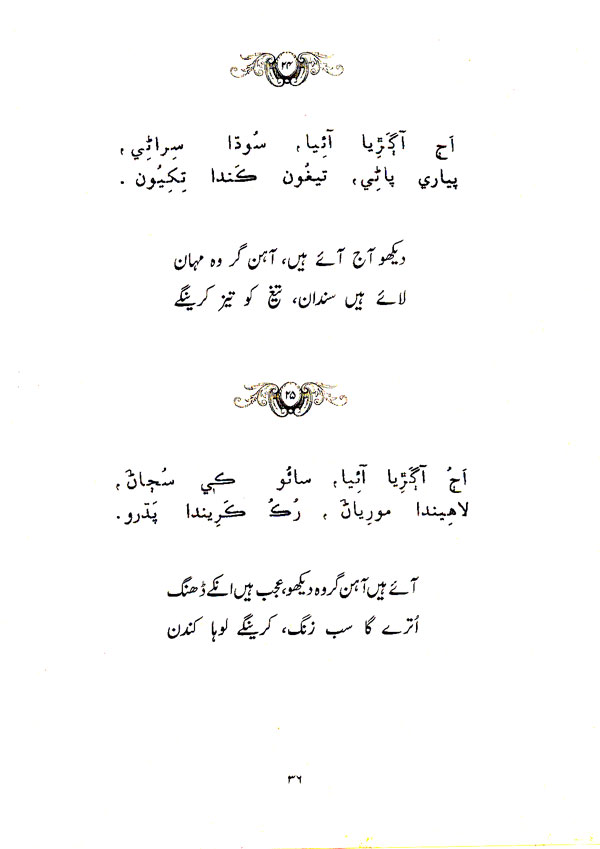 ۲۴
اَڄ آڳَڙِيا آئِيا، سُوڌا سِراڻِي،
پياري پاڻِي، تيغُون ڪَندا تِکِيُون .
دیکھو آج آئے ہیں، آہن گر وہ مہان
لائے ہیں سندان، تیغ کو تیز کرینگے
۲۵
اَڄُ آڳَڙِيا آئِيا، سائُو ڪي سُڄاڻَ،
لاهِيندا مورِياڻَ ، رُڪُ ڪَرِيندا پَڌرو.
آئے ہیں آہن گر وہ دیکھو، عجب ہیں انکے ڈھنگ
اُترے گا سب زنگ، کرینگے لوہا کندن
۳۶